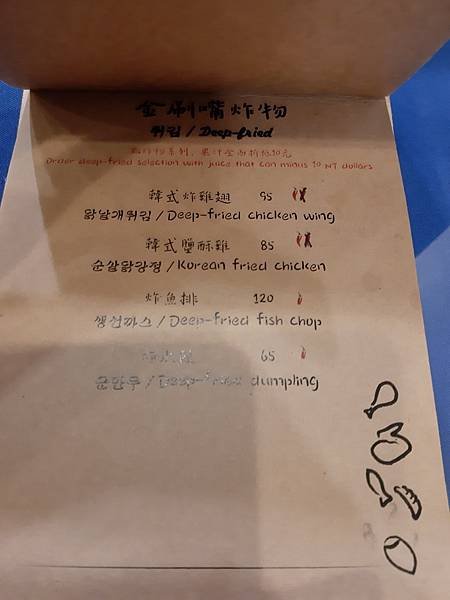 金刷嘴炸物
튀김 / Deep-fried
點炸物系列,果汁全面折抵10元
Order deep-fried selection with juice that can minus 10 NT dollars
韓式炸雞翅 95
닭날개튀김 / Deep-fried chicken wing
韓式鹽酥雞 85
순살닭강정 / Korean fried chicken
炸魚排 120
생선까스 / Deep-fried fish chop
65
군만두 / Deep-fried dumpling